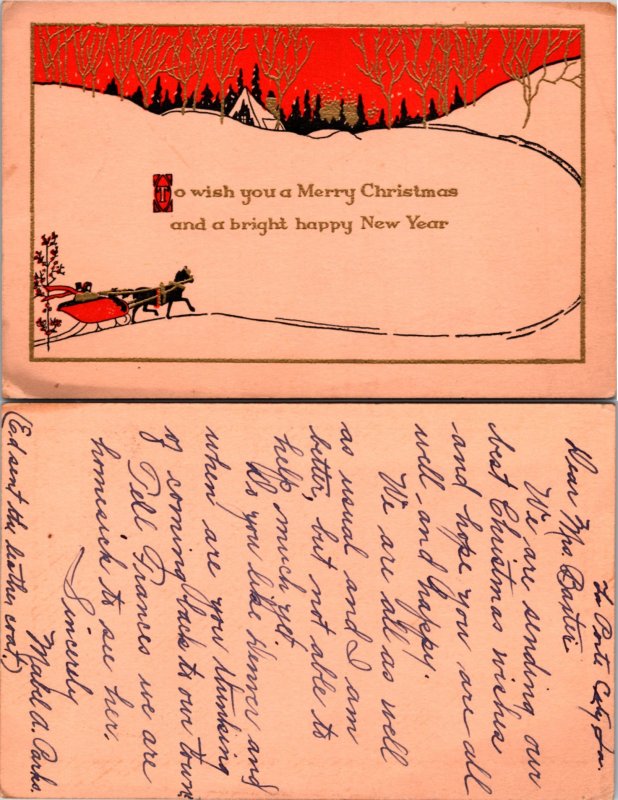 To wish you a Merry Christmas
and a bright happy New Year
La Porte City, Ia.
Dear Mrs Baxter
We are sending our
best Christmas wishes
and hope you are all
well and happy.
We are all as well
as usual and I am
better, but not able to
help much yet.
Do you like Denver and
when are you thinking
of coming back to our town
Tell Frances we are
homesick to see her.
Sincerely
Mabel A. Parks.
(Ed sent the leather coat.)